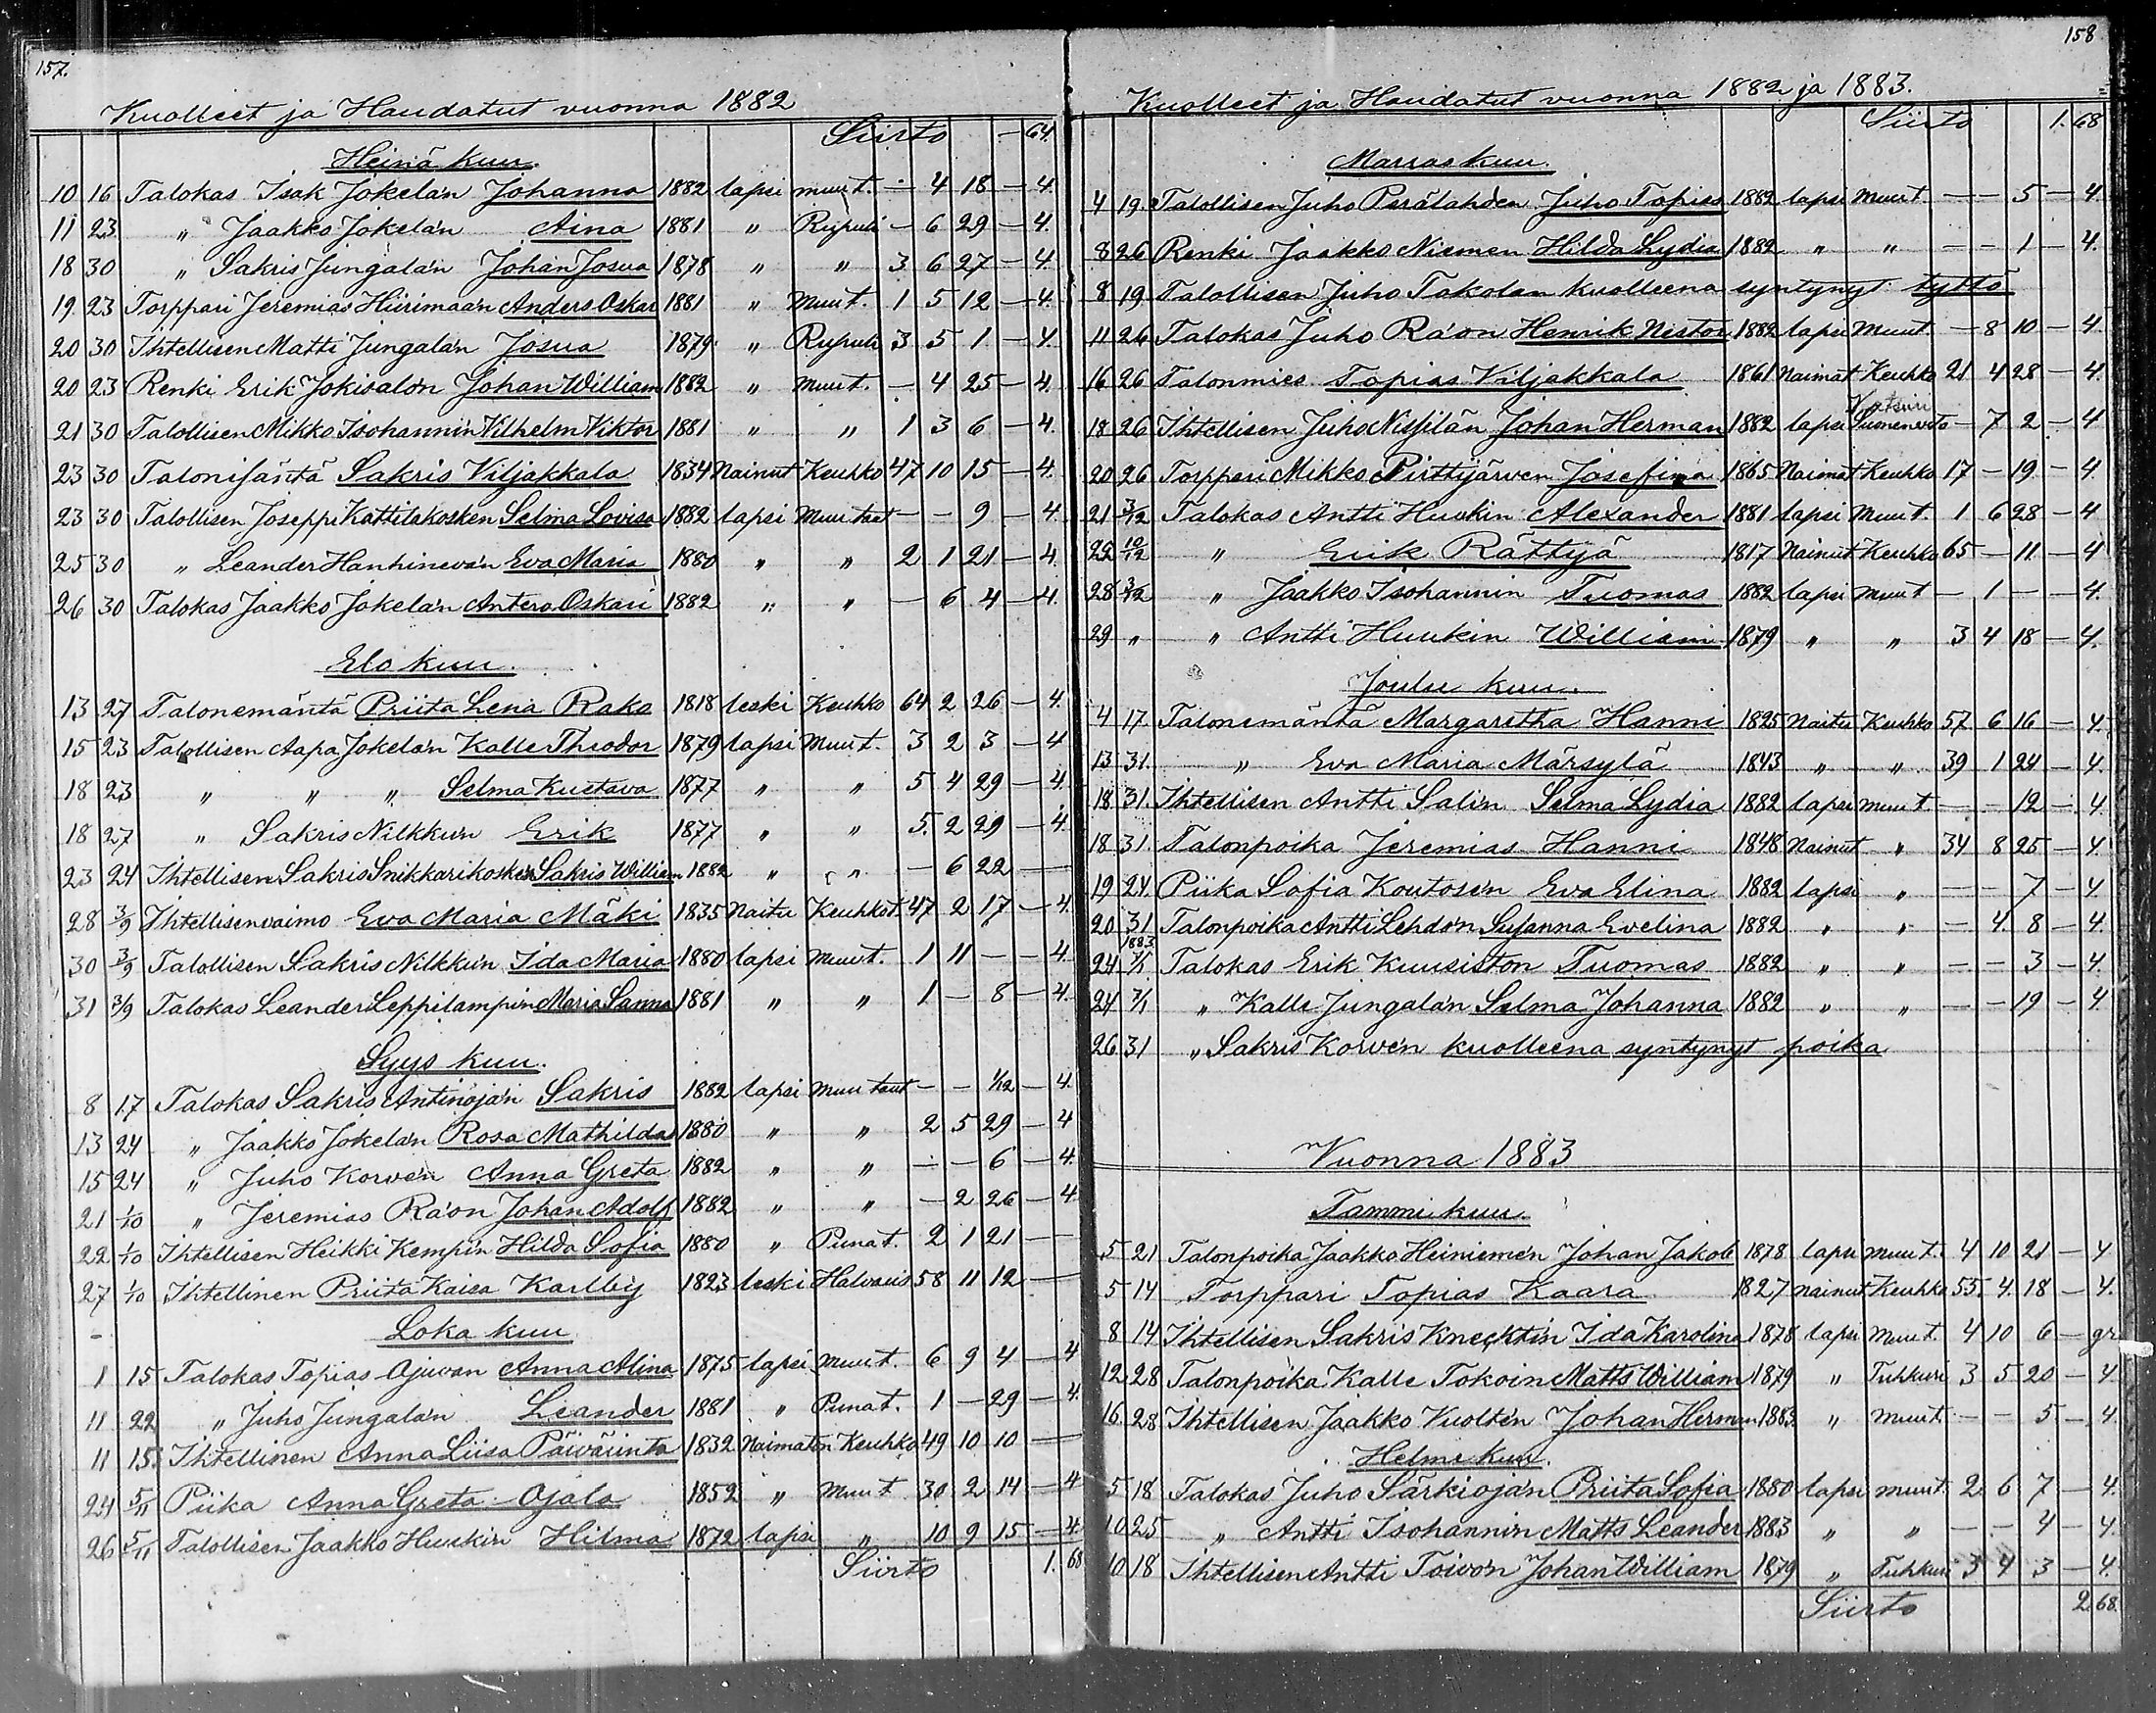 157.
Kuolleet ja Haudatut vuonna 1882
Siirto — 64.
Heinä kuu.
10 16 Talokas Isak Jokelan Johanna 1882 lapsi muut. — 4 18 — 4.
11 23 " Jaakko Jokelan Aina 1881 " Ripuli — 6 29 — 4.
18 30 " Sakris Jungalan Johan Josua 1878 " " 3 6 27 — 4.
19. 23 Torppari Jeremias Hiirimaan Anders Oskar 1881 " muut. 1 5 12 — 4.
20 30 Ihtellisen Matti Jungalan Josua 1879 " Ripuli 3 5 1 — 4.
20 23 Renki Erik Jokisalon Johan William 1882 " muut. — 4 25 — 4.
21 30 Talollisen Mikko Isohannin Vilhelm Viktor 1881 " " 1 3 6 — 4.
23 30 Talonisäntä Sakris Viljakkala 1834 Nainut Keuhko 47 10 15 — 4.
23 30 Talollisen Joseppi Kattilakosken Selma Lovisa 1882 lapsi Muu taut — — 9 — 4.
25 30 " Leander Hanhinevan Eva Maria 1880 " " 2 1 21 — 4.
26 30 Talokas Jaakko Jokelan Antero Oskari 1882 " " — 6 4 — 4.
Elo kuu.
13 27 Talonemäntä Priita Lena Rako 1818 leski Keuhko 64 2 26 — 4.
15 23 Talollisen Aapa Jokelan Kalle Theodor 1879 lapsi Muut. 3 2 3 — 4
18 23 " " " Selma Kustava 1877 " " 5 4 29 — 4.
18 27 " Sakris Nilkkun Erik 1877 " " 5. 2 29 — 4.
23 24 Ihtellisen Sakris Snikkarikosken Sakris William 1882 " " — 6 22 —
28 3/9 Ihtellisen vaimo Eva Maria Mäki 1835 Naitu Keuhkot. 47 2 17 — 4.
30 3/9 Talollisen Sakris Nilkkun Ida Maria 1880 lapsi Muut. 1 11 — — 4.
31 3/9 Talokas Leander Leppilampin Maria Sanna 1881 " " 1 — 8 — 4.
Syys kuu.
8 17 Talokas Sakris Antinojan Sakris 1882 lapsi Muu taut — — 1/12 — 4.
13 24 " Jaakko Jokelan Rosa Mathilda 1880 " " 2 5 29 — 4
15 24 " Juho Korven Anna Greta 1882 " " — — 6 — 4.
21 1/10 " Jeremias Räon Johan Adolf 1882 " " — 2 26 — 4
22 1/10 Ihtellisen Heikki Kempin Hilda Sofia 1880 " Punat. 2 1 21 —
27 1/10 Ihtellinen Priita Kaisa Karlby 1823 leski Halvaus 58 11 12 —
Loka kuu
1 15 Talokas Topias Ojuvan Anna Alina 1875 lapsi Muut. 6 9 4 — 4
11 22 " Juho Jungalan Leander 1881 " Punat. 1 — 29 — 4.
11 15. Ihtellinen Anna Liisa Päivärinta 1832 Naimaton Keuhko 49 10 10 —
24 5/11 Piika Anna Greta Ojala 1852 " Muut 30 2 14 — 4
26 5/11 Talollisen Jaakko Huukin Hilma 1872 lapsi " 10 9 15 — 4.
Siirto 1. 68
158
Kuolleet ja Haudatut vuonna 1882 ja 1883.
Siirto 1. 68
Marraskuu.
4 19. Talollisen Juho Perälahden Juho Topias 1882 lapsi Muut — — 5 — 4.
8 26 Renki Jaakko Niemen Hilda Lydia 1882 " " — — 1 — 4.
8 19 Talollisen Juho Takolan kuolleena syntynyt tyttö
11 26 Talokas Juho Räon Henrik Nestor 1882 lapsi Muut — 8 10 — 4.
16 26 Talonmies Topias Viljakkala 1861 Naimat Keuhko 21 4 28 — 4.
18 26 Ihtellisen Juho Nissilän Johan Herman 1882 lapsi Suonenveto — 7 2 — 4
20 26 Torppari Mikko Pirttijärven Josefina 1865 Naimat Keuhko 17 — 19 — 4.
21 3/12 Talokas Antti Huukin Alexander 1881 lapsi Muut. 1 6 28 — 4
22 10/12 " Erik Rättyä 1817 Nainut Keuhko 65 — 11 — 4
28 3/12 " Jaakko Isohannin Tuomas 1882 lapsi muut — 1 — — 4.
29 " " Antti Huukin William 1879 " " 3 4 18 — 4.
Joulu kuu.
4 17 Talonemäntä Margaretha Hanni 1825 Naitu Keuhko 57. 6 16 — 4.
13 31. " Eva Maria Märsylä 1843 " " 39 1 24 — 4.
18 31. Ihtellisen Antti Salin Selma Lydia 1882 lapsi muut — — 12 — 4.
18 31. Talonpoika Jeremias Hanni 1848 Nainut " 34 8 25 — 4.
19 24. Piika Sofia Koutosen Eva Elina 1882 lapsi " — — 7 — 4
20 31 Talonpoika Antti Lehdon Susanna Evelina 1882 " " — 4. 8 — 4.
1883
24 7/1 Talokas Erik Kuusiston Tuomas 1882 " " — — 3 — 4.
24 7/1 " Kalle Jungalan Selma Johanna 1882 " " — — 19 — 4
26 31 " Sakris Korven kuolleena syntynyt poika
Vuonna 1883
Tammikuu.
5 21 Talonpoika Jaakko Heiniemen Johan Jakob 1878 lapsi muut. 4 10 21 — 4
5 14 Torppari Topias Kaara 1827 Nainut Keuhko 55. 4. 18 — 4.
8 14 Ihtellisen Sakris Knecktin Ida Karolina 1878 lapsi Muut. 4 10 6 — gr
12 28 Talonpoika Kalle Tokoin Matts William 1879 " Tuhkuri 3 5 20 — 4
16. 28 Ihtellisen Jaakko Vuolten Johan Herman 1883 " muut. — — 5 — 4.
Helmikuu.
5 18 Talokas Juho Särkiojan Priita Sofia 1880 lapsi muut. 2 6 7 — 4.
10 25 " Antti Isohannin Matts Leander 1883 " " — — 4 — 4.
10 18 Ihtellisen Antti Toivon Johan William 1879 " Tuhkuri 3 4 3 — 4.
Siirto 2. 68.